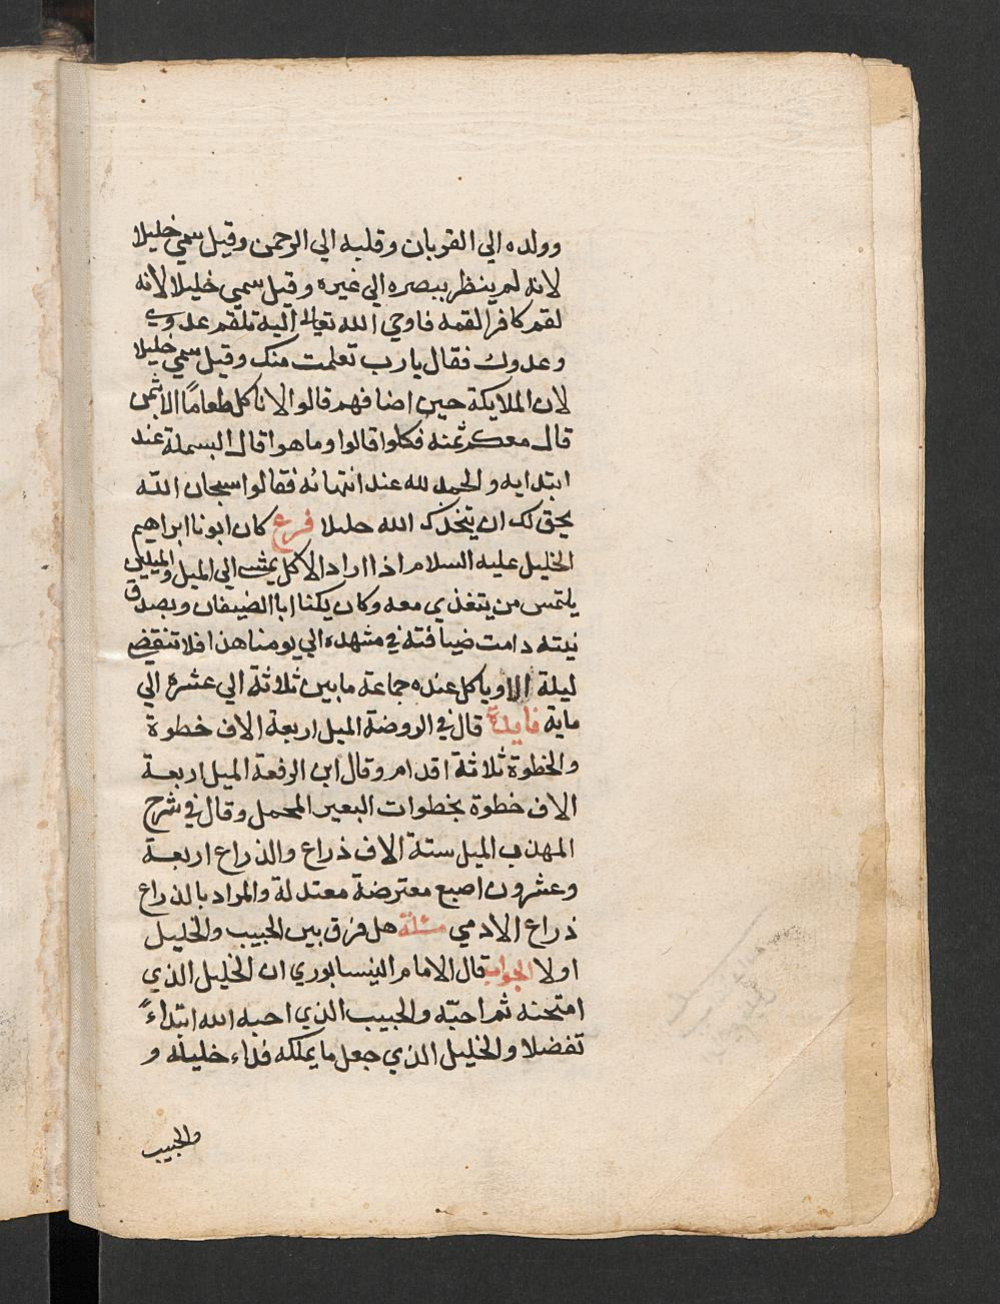 وولده الي القربان وقلبه الي الرحمن وقيل سمي خليلا
لانه لم ينظر ببصره الي غيره وقيل سمي خليلا لانه
لقم كافرا لقمه فاوحي الله تعالى اليه تلقم عدوي
وعدوك فقال يارب تعلمت منك وقيل سمي خليلا
لان الملايكة حين اضافهم قالوا لا ناكل طعامًا الا بثمن
قال معكم ثمنه فكلوا قالوا وما هوا قال البسملة عند
ابتدايه والحمد لله عند انتهائه فقالوا سبحان الله
يحق لك ان يتخذك الله خليلا فرع كان ابونا ابراهيم
الخليل عليه السلام اذا اراد الاكل يمشي الي الميل والميلين
يلتمس من يتغذي معه وكان يكنا ابا الضيفان وبصدق
نيته دامت ضيافته في مشهده الي يومنا هذا فلا تنقضي
ليلة الا وياكل عنده جماعة مابين ثلاثة الي عشرة الي
ماية فايدة قال في الروضة الميل اربعة الاف خطوة
والخطوة ثلاثة اقدام وقال ابن الرفعة الميل اربعة
الاف خطوة بخطوات البعير المحمل وقال في شرح
المهذب الميل ستة الاف ذراع والذراع اربعة
وعشرون اصبع معترضة معتدلة والمراد بالذراع
ذراع الادمي مسئلة هل فرق بين الحبيب والخليل
اولا الجواب قال الامام النيسابوري ان الخليل الذي
امتحنه ثم احبّه والحبيب الذي احبه الله ابتداءً
تفضلا والخليل الذي جعل ما يملكه فداء خليله و
والحبيب